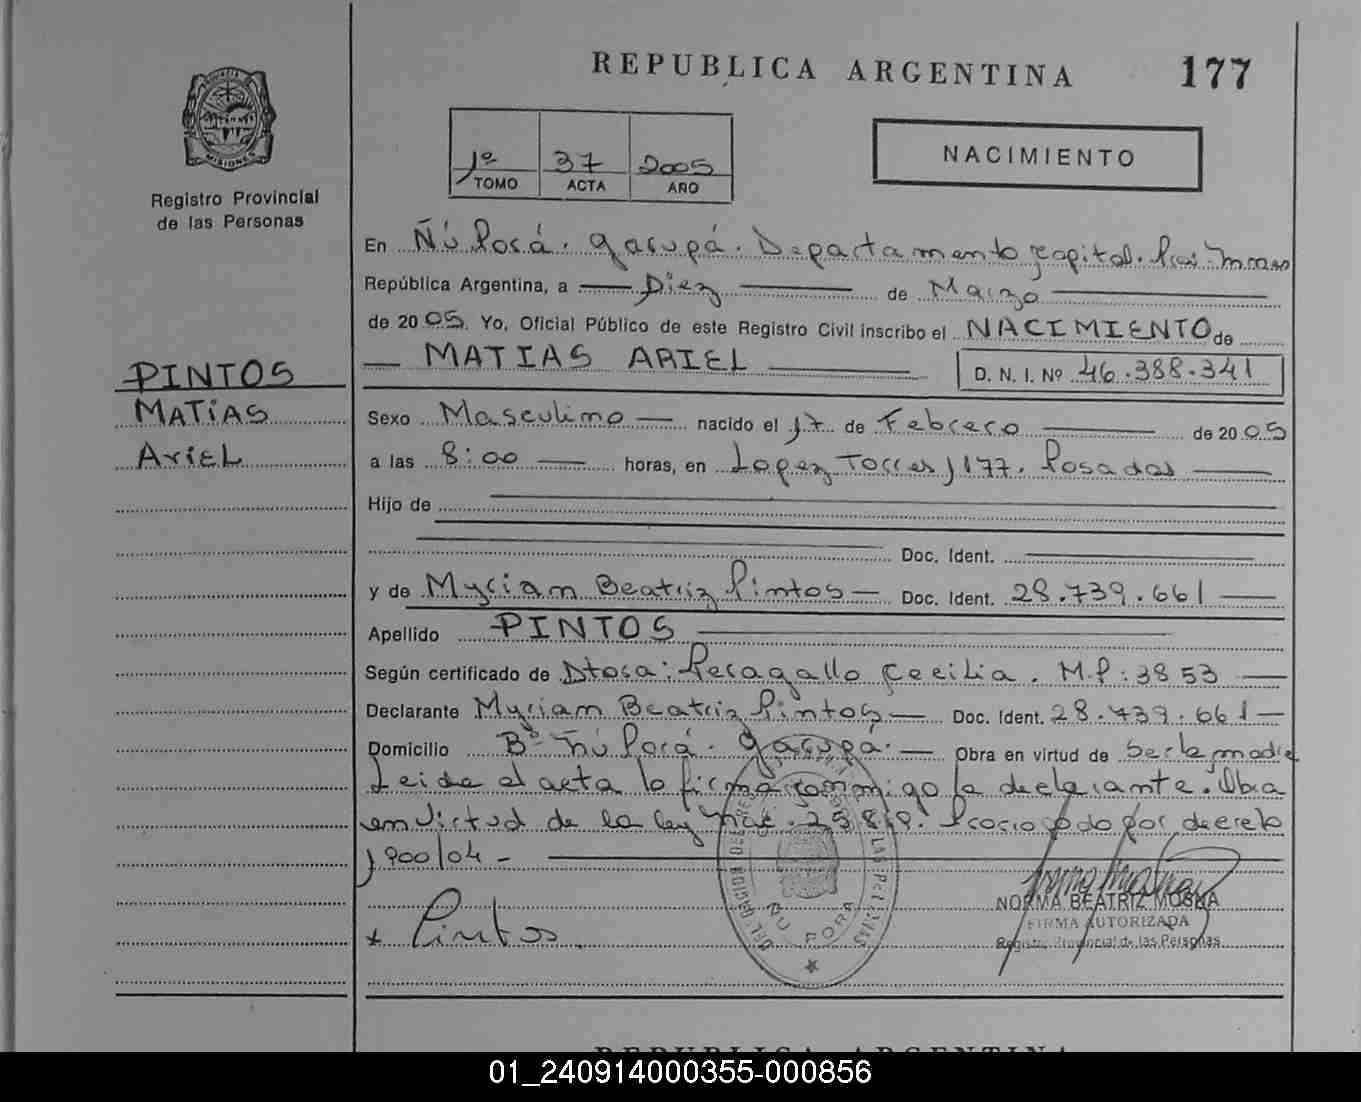 REPUBLICA ARGENTINA
177
PROVINCIA DE
MISIONES
Registro Provincial
de las Personas
1º 37 2005
TOMO ACTA AÑO
NACIMIENTO
En Ñú Porá. Garupá. Departamento Capital. Pcia. Mnes
República Argentina, a Diez de Marzo
de 2005. Yo, Oficial Público de este Registro Civil inscribo el NACIMIENTO de
MATIAS ARIEL
D. N. I. Nº 46.388.341
PINTOS
MATÍAS
ARIEL
Sexo Masculino nacido el 17 de Febrero de 2005
a las 8:00 horas, en Lopez Torres 1177. Posadas
Hijo de
Doc. Ident.
y de Myriam Beatriz Pintos Doc. Ident. 28.739.661
Apellido PINTOS
Según certificado de Dtora: Peragallo Cecilia. M.P: 3853
Declarante Myriam Beatriz Pintos Doc. Ident. 28.739.661
Domicilio Bº Ñú Porá. Garupá. Obra en virtud de ser la madre
Leida el acta la firma conmigo la declarante. Obra
en virtud de la ley Nac. 25819. Prorrogado por decreto
1900/04 -
DELEGACION
LAS PERSONAS
ÑU PORA
NORMA BEATRIZ
FIRMA AUTORIZADA
Registro Provincial de las Personas
x Pintos.
REPUBLICA ARGENTINA
01_240914000355-000856